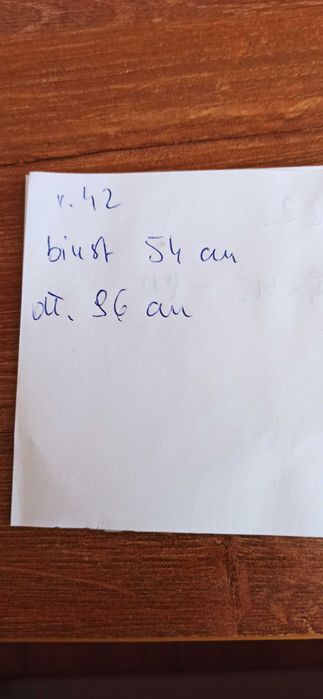 r. 42
biust 54 cm
dł. 96 cm